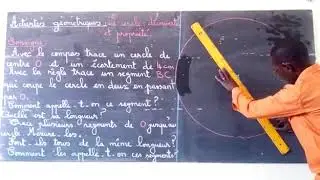 Activités géométriques: le cercle: découverte
et propriété
Consigne:
Avec le compas trace un cercle de
centre O et un écartement de 4cm
Avec la règle trace un segment BC
qui coupe le cercle en deux en passant
par O.
Comment appelle-t-on ce segment?
Quelle est sa longueur?
Trace plusieurs segments de O jusqu'au
cercle. Mesure-les.
Font-ils tous de la même longueur?
Comment les appelle-t-on ces segments